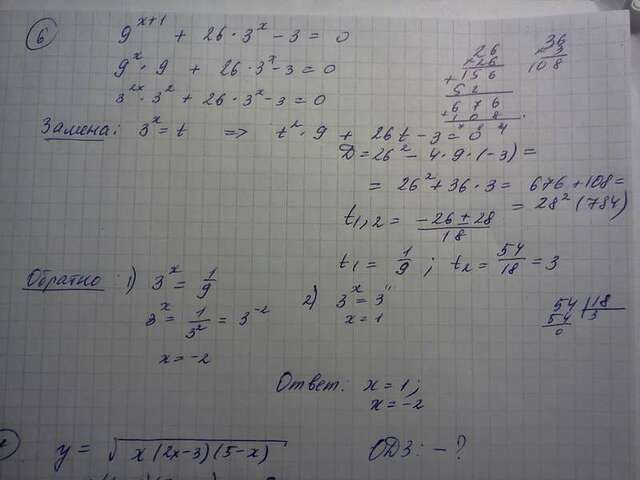 6 9^(x+1) + 26·3^x - 3 = 0
9^x·9 + 26·3^x - 3 = 0
3^(2x)·3^2 + 26·3^x - 3 = 0
26
×26
+156
52
+676
108
784
36
×3
108
Замена: 3^x = t => t^2·9 + 26t - 3 = 0
D = 26^2 - 4·9·(-3) =
= 26^2 + 36·3 = 676 + 108 =
= 28^2 (784)
t1,2 = (-26 ± 28)/18
t1 = 1/9 ; t2 = 54/18 = 3
Обратно : 1) 3^x = 1/9
3^x = 1/3^2 = 3^-2
x = -2
2) 3^x = 3
x = 1
54 | 18
54 3
0
Ответ: x = 1;
x = -2
y = √(x(2x-3)(5-x)) ОДЗ: - ?